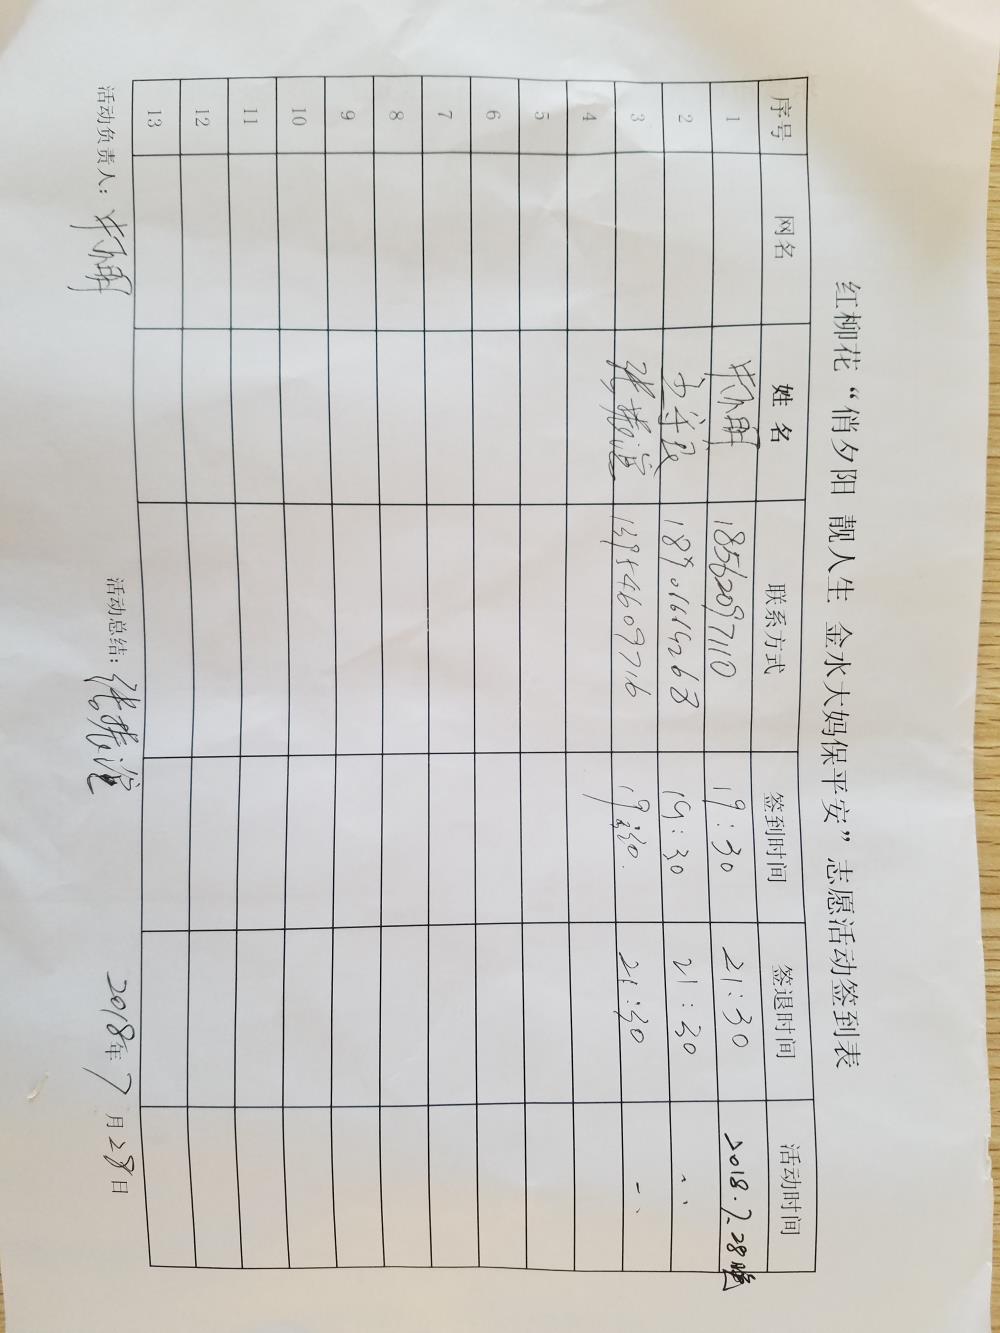 红柳花“俏夕阳 靓人生 金水大妈保平安”志愿活动签到表
序号 网名 姓名 联系方式 签到时间 签退时间 活动时间
1 18562097110 19:30 21:30 2018.7.28晚
2 18901661268 19:30 21:30 、、
3 张振滢 13954609716 19:30. 21:30 、、
4
5
6
7
8
9
10
11
12
13
活动负责人: 活动总结:张振滢 2018年7月28日